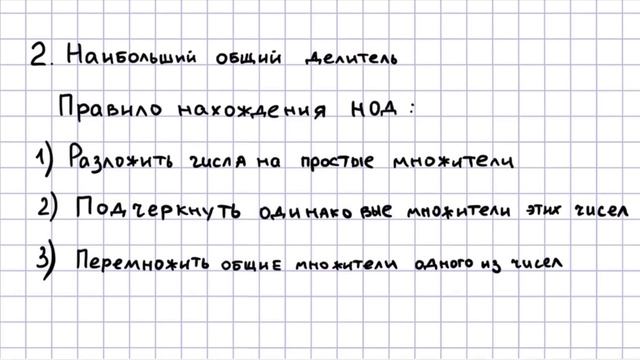 2. Наибольший общий делитель
Правило нахождения НОД :
1) Разложить числа на простые множители
2) Подчеркнуть одинаковые множители этих чисел
3) Перемножить общие множители одного из чисел